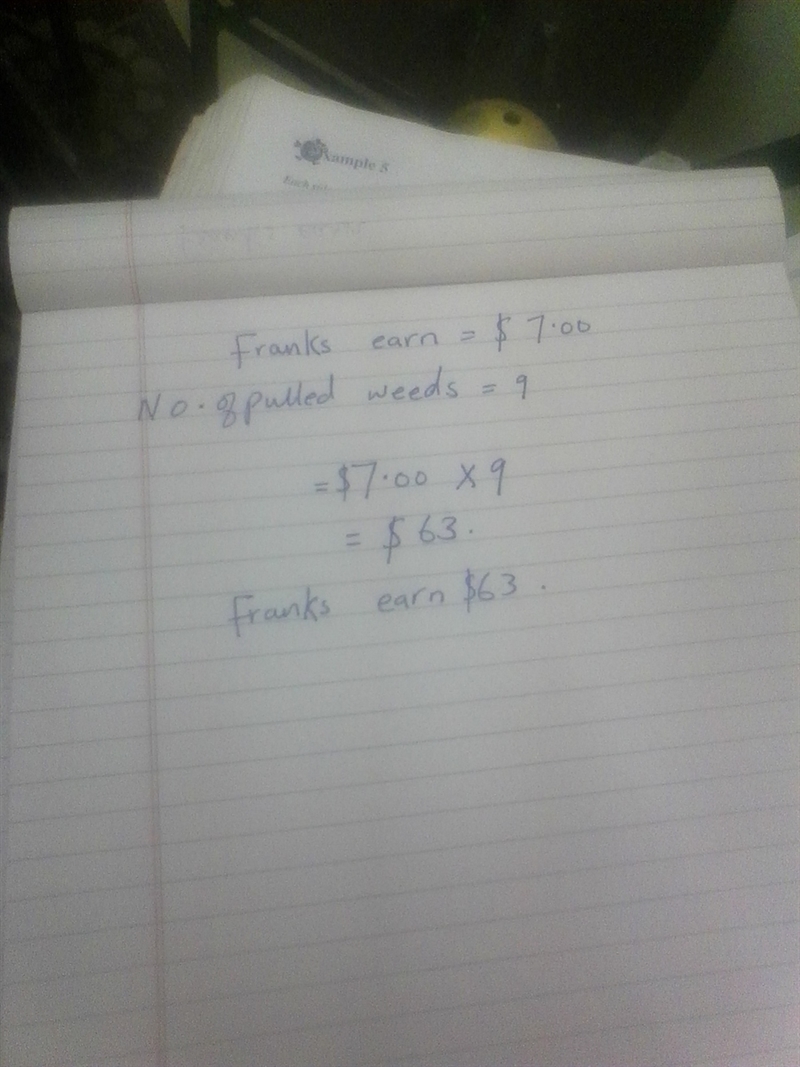 Example 5
Each
Franks earn = $ 7.00
No. of pulled weeds = 9
= $7.00 X 9
= $ 63.
Franks earn $63.